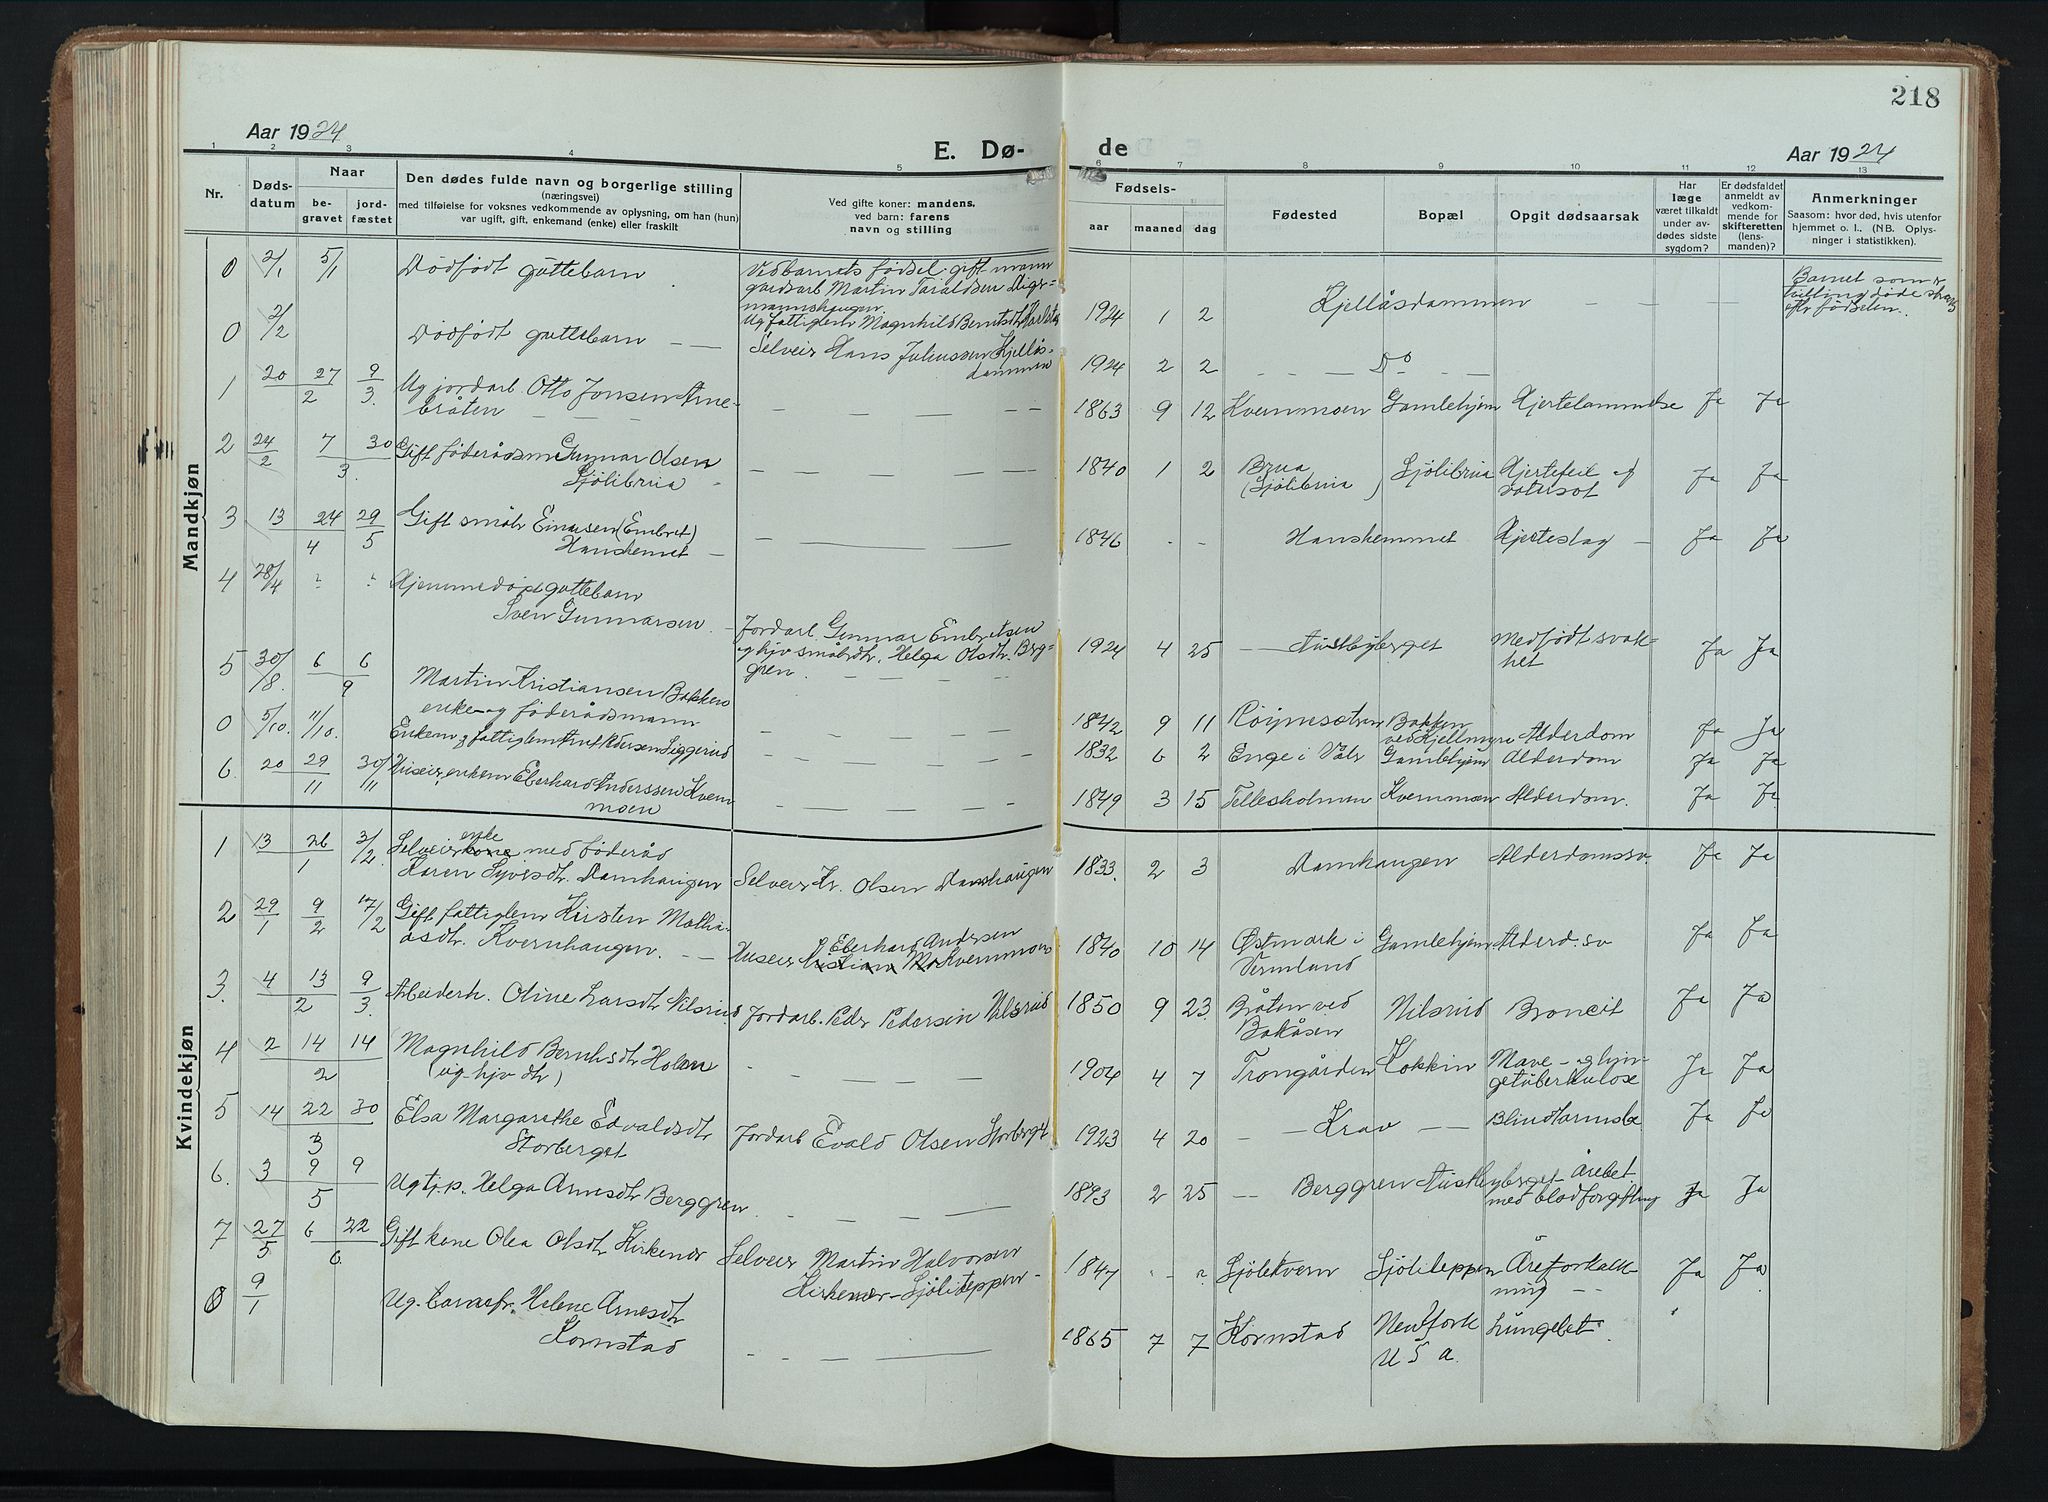 218
Aar 1924
E. Dø-
de
Aar 1924
1 2 3 4 5 6 7 8 9 10 11 12 13
Nr.
Døds-
datum
Naar
be-
gravet
jord-
fæstet
Den dødes fulde navn og borgerlige stilling
(næringsvei)
med tilføielse for voksnes vedkommende av oplysning, om han (hun)
var ugift, gift, enkemand (enke) eller fraskilt
Ved gifte koner: mandens,
ved barn: farens
navn og stilling
Fødsels-
aar
maaned
dag
Fødested
Bopæl
Opgit dødsaarsak
Har
læge
været tilkaldt
under av-
dødes sidste
sygdom?
Er dødsfaldet
anmeldt av
vedkom-
mende for
skifteretten
(lens-
manden)?
Anmerkninger
Saasom: hvor død, hvis utenfor
hjemmet o. l., (NB. Oplys-
ninger i statistikken).
Mandkjøn
0 2/1 5/1 Dødfødt guttebarn
Ved barnets fødsel gift mann
gardsarb Martin Taraldsen Digr-
mannshaugen
Ug fattiglem Magnhild Berntsdtr
1924 1 2 Kjellåsdammen — — —
Barnet som er
tvilling døde straks
efter fødselen.
0 2/2 Dødfødt guttebarn — —
Selveir Hans Juliussen Kjellås-
dammen
1924 2 2 — — Do — —
1 20 27/2 9/3 Ug jordarb Otto Jonsen Arne-
bråten — — —
1863 9 12 Kvernmoen Gamlehjem Hjertelammelse Ja Ja
2 24/2 7 30/3 Gift føderådsm Gunnar Olsen
Sjølibrua
1840 1 2 Brua (Sjølibrua) Sjølibrua Hjertefeil og
vatersot Ja Ja
3 13 24/4 29/5 Gift småbr Einarsen (Embret)
Hanskemmet —
1846 - - Hanskemmet Hjerteslag — Ja Ja
4 28/4 - - Hjemmedøpt guttebarn
Sven Gunnarsen
Jordarb. Gunnar Embretsen
og hjv småbrdtr. Helga Olsdtr. Berg-
gren
1924 4 25 — Austbyberget Medfødt svak-
het Ja Ja
5 30/8 6 6/9 Martin Kristiansen Bakken
enkem og føderådsmann
1842 9 11 Bakken
ved Kjellmyra Alderdom Ja Ja
0 5/10 11/10 Enkem og fattiglem
1832 6 2 Enge i Våler Gamlehjem Alderdom Ja Ja
6 20 29/11 30/11 Huseier, enkem Eberhard Anderssen Kvern-
moen
1849 3 15 Tellesholmen Kvernmoen Alderdom. Ja Ja
Kvindekjøn
1 13 26/1 3/2 Selveier enke kone med føderåd
Karen Syversdtr. Damhaugen
Selveir Kr. Olsen Damhaugen
1833 2 3 Damhaugen Alderdomssv Ja Ja
2 29/1 9/2 17/2 Gift fattiglem Kirsten Mathi-
asdtr. Kvernhaugen. — —
Huseier Eberhard Andersen
Kristian Mo Kvernmoen
1840 10 14 Østmark i
Vermland Gamlehjem Alderd.sv Ja Ja
3 4 13/2 9/3 Arbeiderk. Oline Larsdtr Nilsrud
Jordarb. Peder Pedersen Nilsrud
1850 9 23 Bråten ved
Bakåsen Nilsrud Broncit Ja Ja
4 2 14/2 14 Magnhild Bernhsdtr Holen
(ug-hjv dtr)
1904 4 7 Trongården Kokkin Mave- og hjer-
netuberkulose Ja Ja
5 14 22/3 30 Elsa Margarethe Edvaldsdtr
Storberget
Jordarb Evald Olsen Storberget
1923 4 20 — — Krav — — Blindtarmsb Ja Ja
6. 3 9/5 9 Ug tj.p. Helga Arnesdtr Berggren
1893 2 25 — Berggren Austbyberget Årebet.
med blodforgiftning Ja Ja
7 27/5 6/6 22 Gift kone Olea Olsdtr Kirkenær
Selveir Martin Halvorsen
Kirkenær-Sjøliteppen
1847 - - Sjølikvern Sjøliteppen Åreforkalk-
ning — Ja Ja
0 9/1 Ug. barnefr. Helene Arnesdtr
Kornstad
1865 7 7 Kornstad New York
U S a. Lungebet.